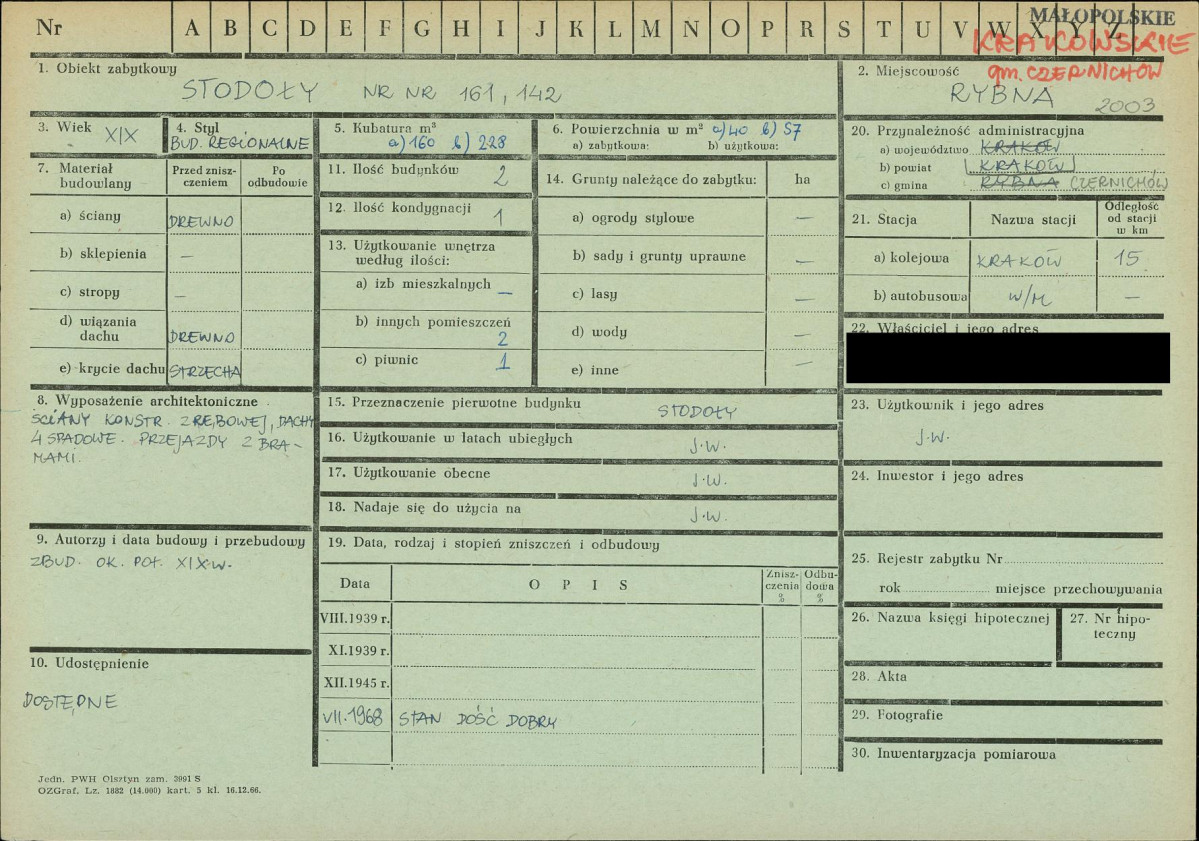 Nr A B C D E F G H I J K L M N O P R S T U V W X Y Z
MAŁOPOLSKIE
KRAKOWSKIE
gm. CZERNICHÓW
1. Obiekt zabytkowy
STODOŁY NR NR 161, 142
2. Miejscowość
RYBNA 2003
3. Wiek XIX
4. Styl
BUD. REGIONALNE
5. Kubatura m³
a) 160 b) 228
6. Powierzchnia w m² a) 40 b) 57
a) zabytkowa: b) użytkowa:
7. Materiał budowlany
Przed zniszczeniem
Po odbudowie
a) ściany DREWNO
b) sklepienia —
c) stropy —
d) wiązania dachu DREWNO
e) krycie dachu STRZECHA
8. Wyposażenie architektoniczne
ŚCIANY KONSTR. ZRĘBOWEJ, DACHY
4 SPADOWE. PRZEJAZDY Z BRA-
MAMI.
9. Autorzy i data budowy i przebudowy
ZBUD. OK. POŁ. XIX.W.
10. Udostępnienie
DOSTĘPNE
11. Ilość budynków 2
12. Ilość kondygnacji 1
13. Użytkowanie wnętrza
według ilości:
a) izb mieszkalnych —
b) innych pomieszczeń
2
c) piwnic 1
14. Grunty należące do zabytku: ha
a) ogrody stylowe —
b) sady i grunty uprawne —
c) lasy —
d) wody —
e) inne —
15. Przeznaczenie pierwotne budynku STODOŁY
16. Użytkowanie w latach ubiegłych J.W.
17. Użytkowanie obecne J.W.
18. Nadaje się do użycia na J.W.
19. Data, rodzaj i stopień zniszczeń i odbudowy
Data O P I S Zniszczenia % Odbudowa %
VIII.1939 r.
XI.1939 r.
XII.1945 r.
VII.1968 STAN DOŚĆ DOBRY
20. Przynależność administracyjna
a) województwo KRAKÓW
b) powiat KRAKÓW
c) gmina RYBNA CZERNICHÓW
21. Stacja Nazwa stacji Odległość od stacji w km
a) kolejowa KRAKÓW 15
b) autobusowa W/M —
22. Właściciel i jego adres
23. Użytkownik i jego adres
J.W.
24. Inwestor i jego adres
25. Rejestr zabytku Nr
rok miejsce przechowywania
26. Nazwa księgi hipotecznej
27. Nr hipo-
teczny
28. Akta
29. Fotografie
30. Inwentaryzacja pomiarowa
Jedn. PWH Olsztyn zam. 3991 S
OZGraf. Lz. 1882 (14.000) kart. 5 kl. 16.12.66.